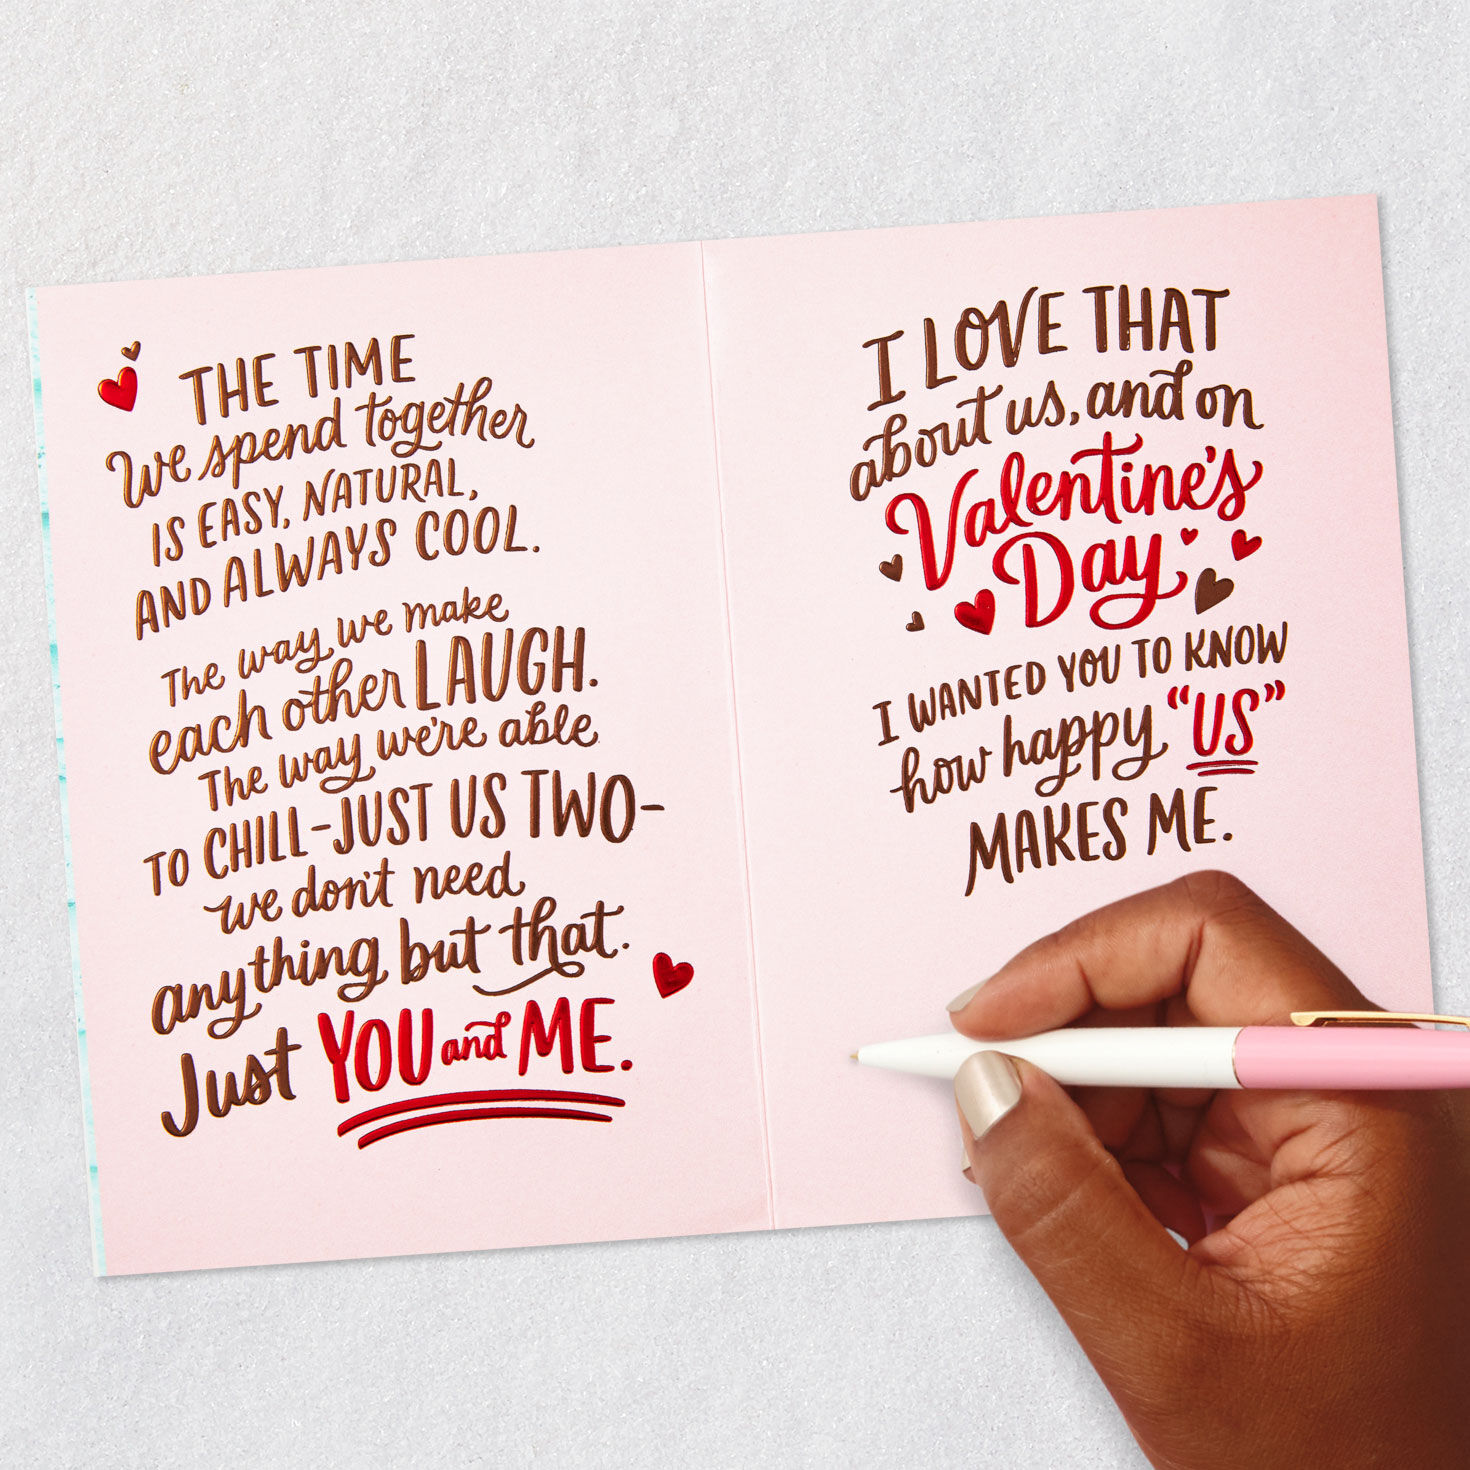 THE TIME
We spend together
IS EASY, NATURAL,
AND ALWAYS COOL.
The way we make
each other LAUGH.
The way we're able
TO CHILL-JUST US TWO-
we don't need
anything but that.
Just YOU and ME.
I LOVE THAT
about us, and on
Valentine's
Day
I WANTED YOU TO KNOW
how happy "US"
MAKES ME.